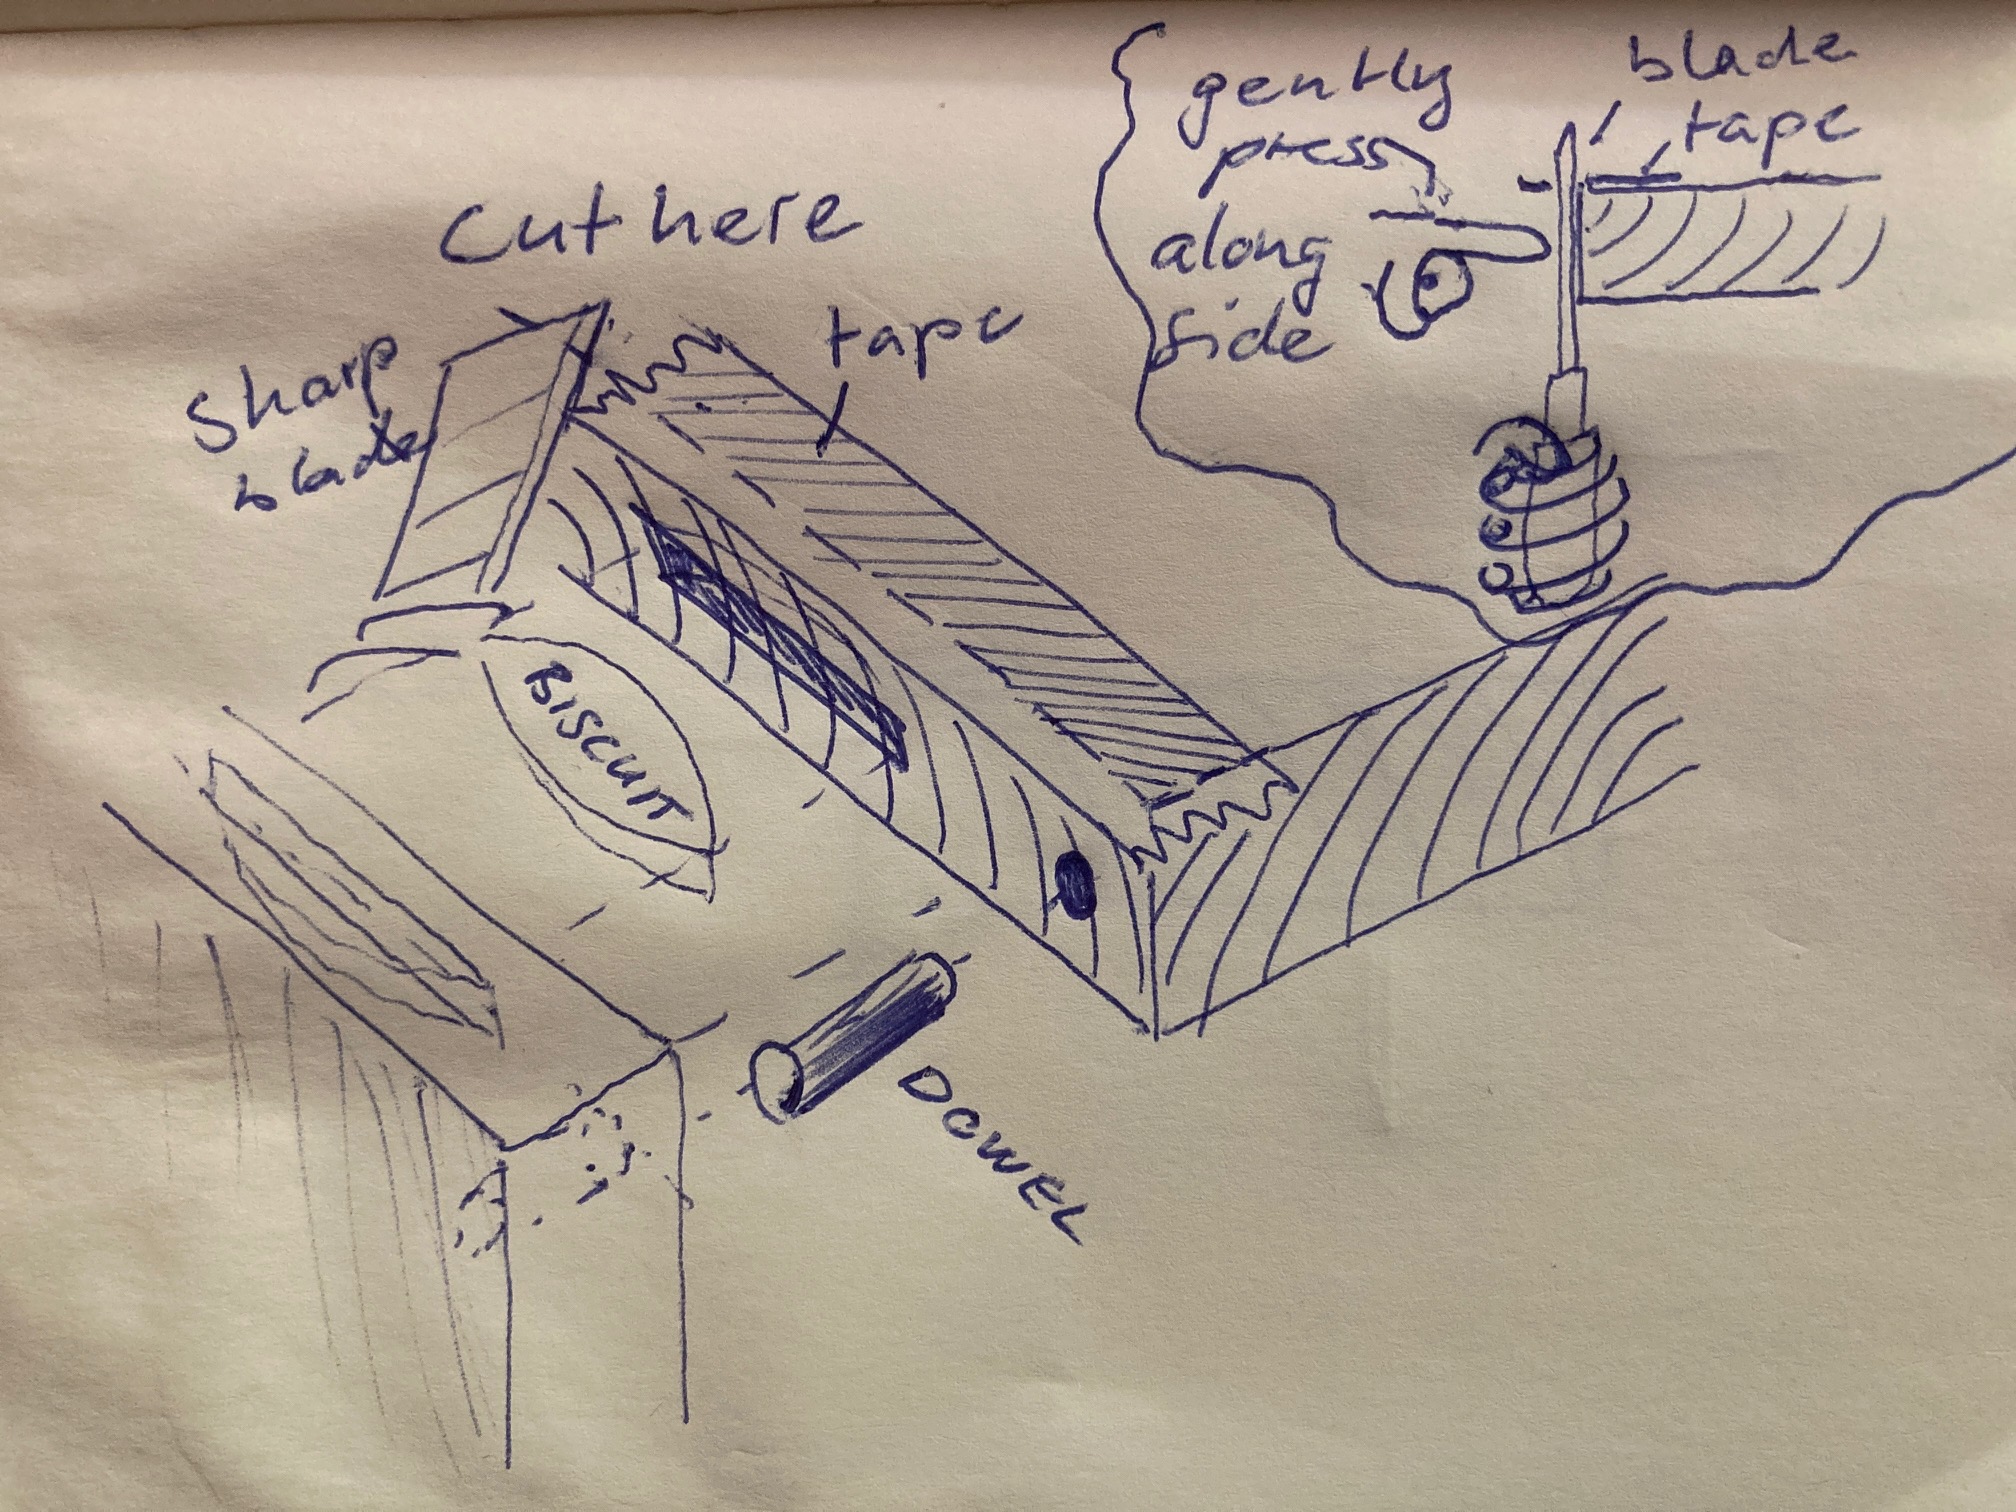 gently
press
along
side
blade
tape
cut here
tape
sharp
blade
BISCUIT
DOWEL